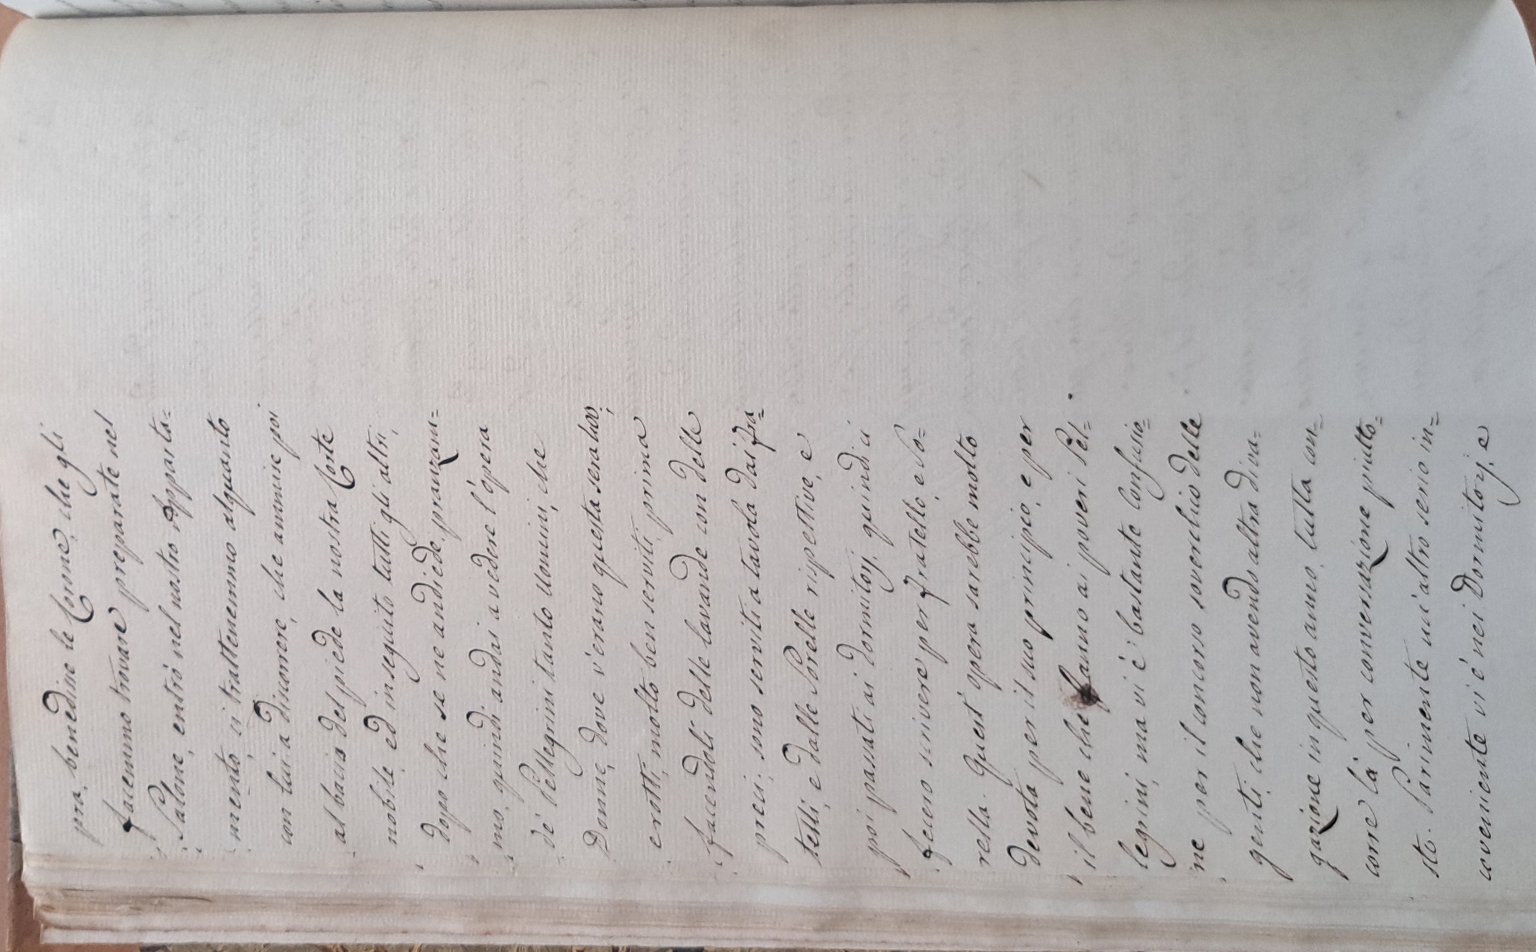 pra, benedisse le Corone, che gli
facemmo trovare preparate nel
Salone, entrò nel nostro Apparta=
mento, ci trattenemmo alquanto
con lui a discorrere, che ammise poi
al bacio del piede la nostra Corte
nobile, ed in seguito tutti gli altri,
dopo che se ne andiede, pranzam=
mo, quindi andai a vedere l'opera
de' Pellegrini tanto Uomini, che
Donne, dove v'erano questa sera 400,
e rotti, molto ben serviti, prima
facendoli delle lavande con delle
preci; sono serviti a tavola dai Fra=
telli, e dalle Sorelle rispettive, e
poi passati ai dormitorj, quindi ci
fecero scrivere per Fratello, e So=
rella. Quest' opera sarebbe molto
devota per il suo principio, e per
il bene che fanno ai poveri Pel=
legrini, ma vi è bastante Confusio=
ne per il concorso soverchio delle
genti, che non avendo altra diva=
gazione in questo anno, tutta con=
corre là per conversazione piutto=
sto. Parimente un'altro serio in=
coveniente vi è nei Dormitorj, e